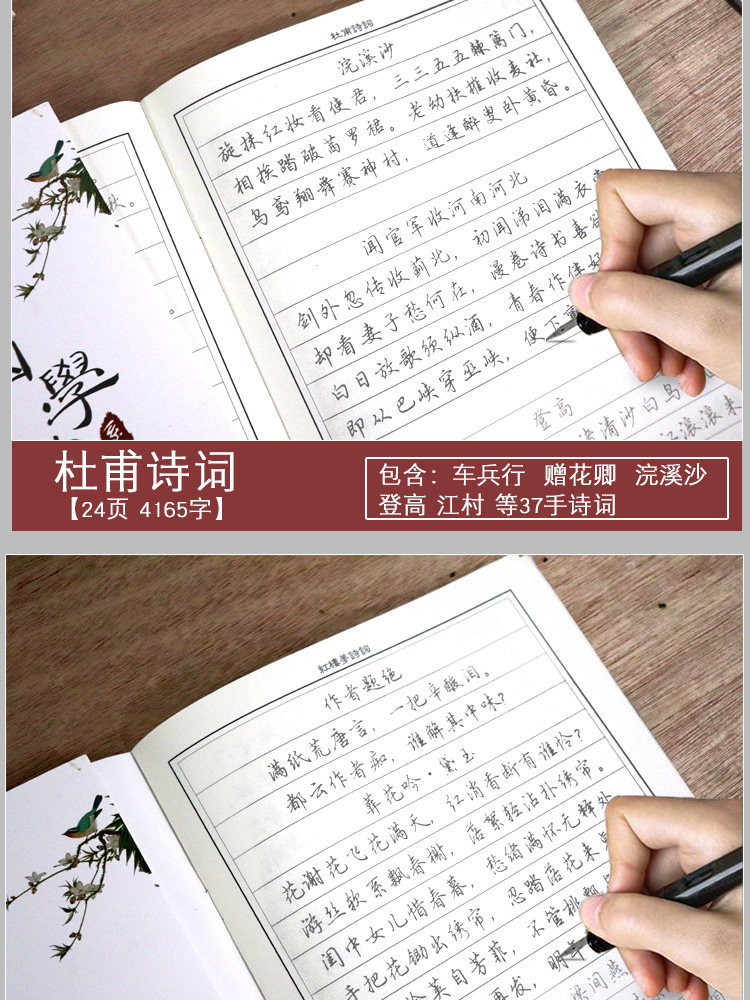 杜甫詩詞
浣溪沙
旋抹红妆看使君，三三五五棘篱门，
相挨踏破茜罗裙。老幼扶摧收麦社，
乌鸢翔舞赛神村，道逢醉叟卧黄昏。
闻官军收河南河北
剑外忽传收蓟北，初闻涕泪满衣裳
却看妻子愁何在，漫卷诗书喜欲
白日放歌须纵酒，青春作伴好
即从巴峡穿巫峡，便下
登高
清沙白鸟
江滚滚来
秋。
學
杜甫诗词
【24页 4165字】
包含：车兵行 赠花卿 浣溪沙
登高 江村 等37手诗词
紅樓夢詩詞
作者题绝
满纸荒唐言，一把辛酸泪。
都云作者痴，谁解其中味？
葬花吟·黛玉
花谢花飞花满天，红消香断有谁怜？
游丝软系飘春榭，落絮轻沾扑绣帘。
闺中女儿惜春暮，愁绪满怀无释处
手把花锄出绣帘，忍踏落花来
荚自芳菲，不管桃飘
再发，明
梁间燕